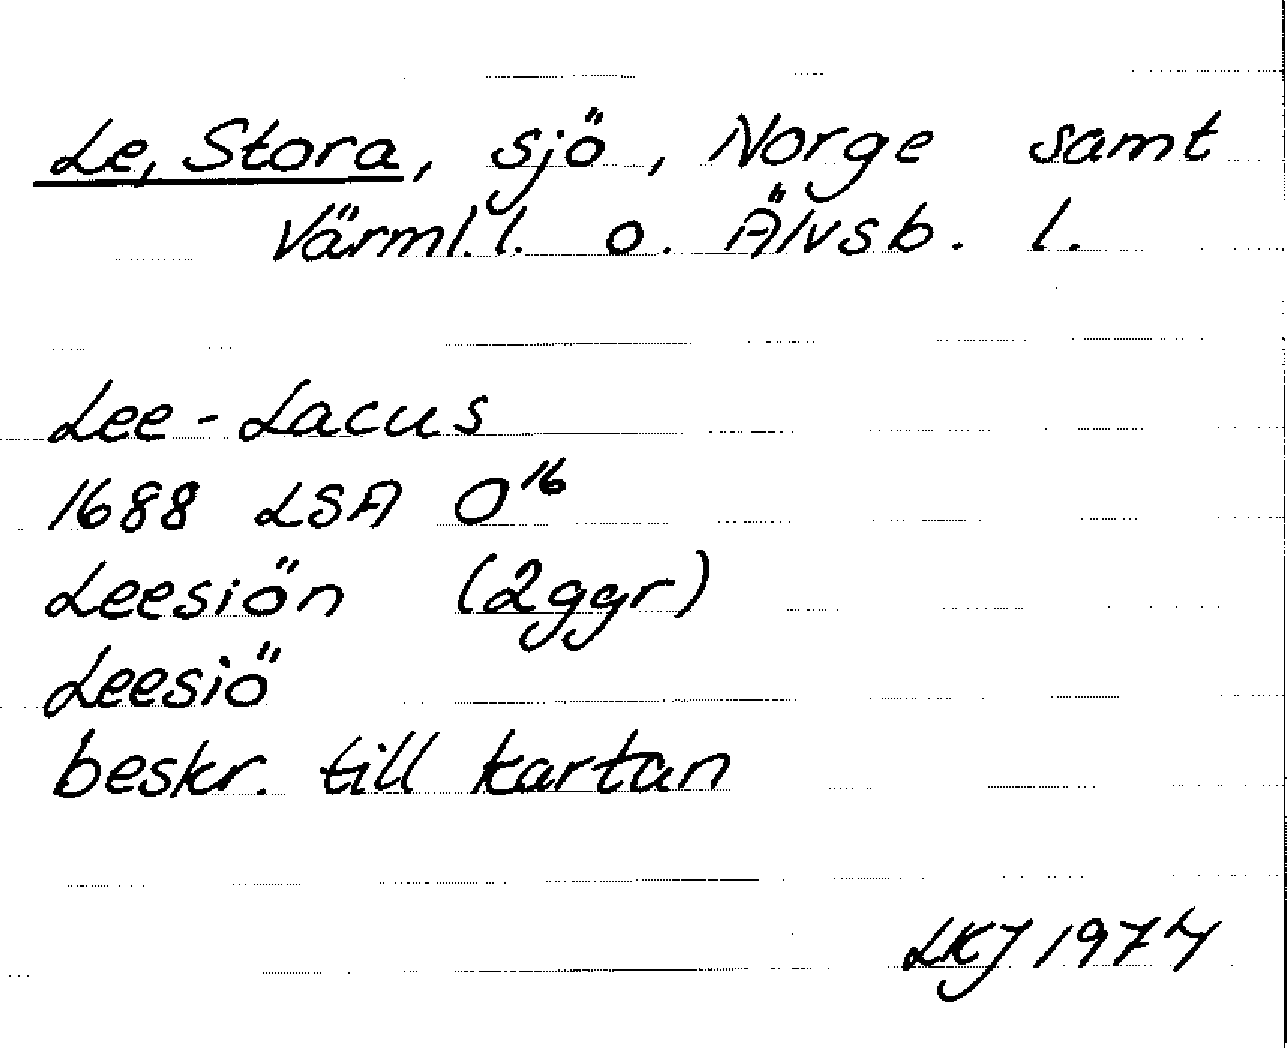 Le, Stora, sjö, Norge samt
Värml. l. o. Älvsb. l.
Lee-Lacus
1688 LSA O16
Leesiön (2ggr)
Leesiö
beskr. till kartan
LKJ 1974